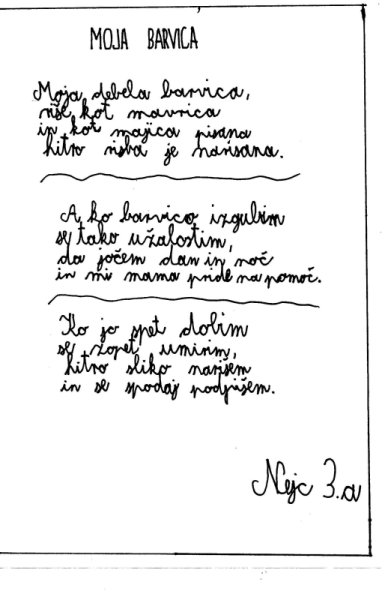 MOJA BARVICA
Moja debela barvica,
riše kot mavrica
in kot majica pisana
hitro risba je narisana.
A ko barvico izgubim
se tako užalostim,
da jočem dan in noč
in mi mama pride na pomoč.
Ko jo spet dobim
se zopet umirim,
hitro sliko narišem
in se spodaj podpišem.
Nejc 3.a